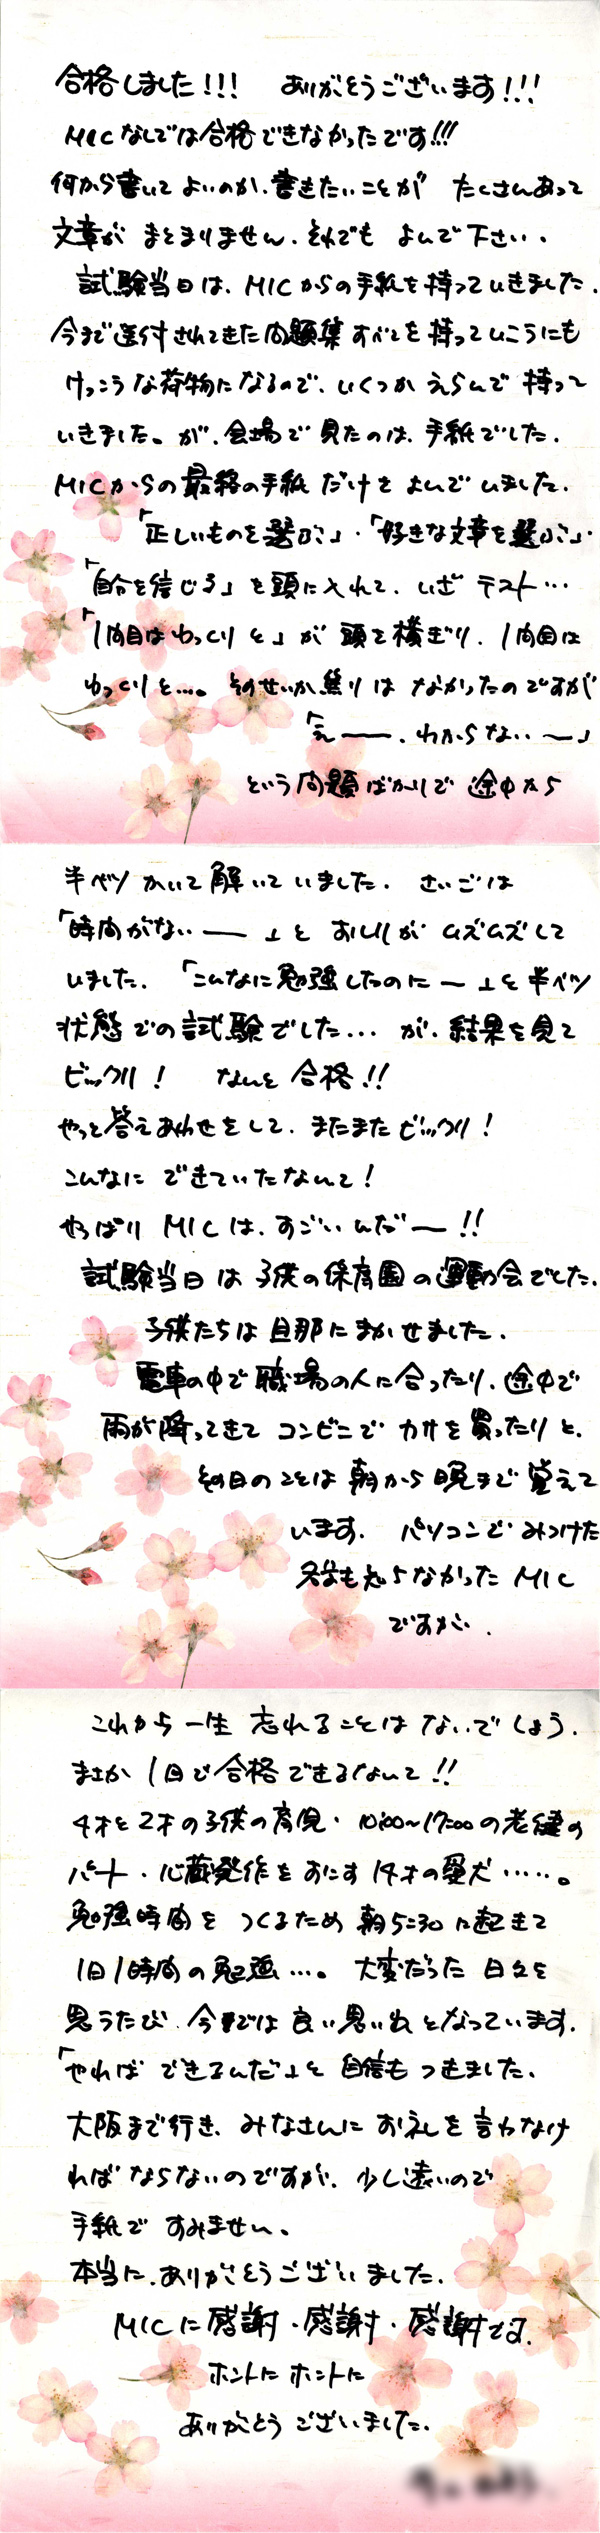 合格しました!!! ありがとうございます!!!
MICなしでは合格できなかったです!!!
何から書いてよいのか、書きたいことが たくさんあって
文章が まとまりません、それでも よんで下さい。
試験当日は、MICからの手紙を持っていきました。
今まで送付されてきた問題集すべてを持っていこうにも
けっこうな荷物になるので、いくつか えらんで 持って
いきました。が、会場で見たのは、手紙でした。
MICからの最終の手紙だけを よんでいました。
「正しいものを選ぶこ」・「好きな文章を選ぶこ」・
「自分を信じる」を頭に入れて、いざ テスト…
「1問目はゆっくりと」が 頭を横ぎり、1問目は
ゆっくりと…。そのせいか焦りは なかったのですが
「え――、わからない〜」
という問題ばかりで 途中から
半ベソかいて解いていました。さいごは
「時間がない――」と おしりが ムズムズして
いました。「こんなに勉強したのに〜」と半ベソ
状態での試験でした… が、結果を見て
ビックリ! なんと 合格!!
やっと答えあわせをして、またまたビックリ!
こんなに できていたなんて!
やっぱり MICは、すごいんだ〜!!
試験当日は子供の保育園の運動会でした。
子供たちは旦那にまかせました。
電車の中で職場の人に合ったり、途中で
雨が降ってきて コンビニで カサを買ったりと、
その日のことは 朝から晩まで 覚えて
います。 パソコンで みつけた
名前も知らなかった MIC
ですが、
これから一生 忘れることは ないでしょう。
まさか 1日で合格できるなんて!!
4才と2才の子供の育児・10:00〜17:00の老健の
パート・心臓発作をおこす14才の愛犬……。
勉強時間を つくるため 朝5:30に起きて
1日1時間の勉強…。 大変だった 日々を
思うたび、今では 良い思い出となっています。
「やれば できるんだ」と 自信も つきました。
大阪まで行き、みなさんに お礼を 言わなけ
れば ならないのですが、少し遠いので
手紙で すみません。
本当に、ありがとうございました。
MICに感謝・感謝・感謝です。
ホントに ホントに
ありがとう ございました。